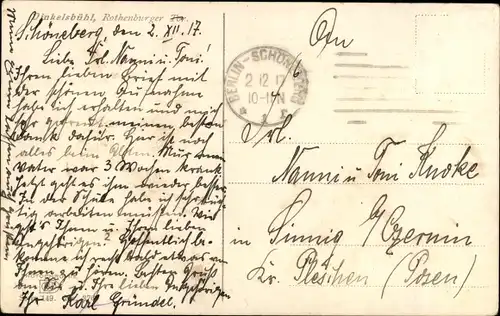 Dinkelsbühl, Rothenburger Tor.
Schöneberg, den 2. XII. 17.
Liebe Frl. Nanni u. Toni!
Ihren lieben Brief mit
der schönen Aufnahme
habe ich erhalten und mich
sehr gefreut, meinen besten
Dank dafür. Hier ist noch
alles beim Alten. Nur mein
Vater war 3 Wochen krank
jetzt geht es ihm wieder besser.
In der Schule habe ich tüchtig
arbeiten müssen. Wie
geht's Ihnen u. Ihren lieben
Angehörigen? Hoffentlich be-
komme ich recht bald etwas von
Ihnen zu hören. Besten Gruß
u. Ihre lieben Angehörigen
Ihr Karl Gründel.
BERLIN-SCHÖNEBERG
2 12 17
10-11 N
1
An
Frl.
Nanni u Toni Knoke
in Sinnig b/Czermin
Kr. Pleschen (Posen)